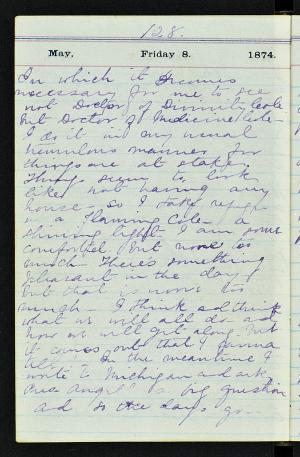 128.
May. Friday 8. 1874.
In which it becomes
necessary for me to see
not Doctor of Divinity Cole
but Doctor of Medicine Cole -
I do it in my usual
tremulous manner for
things are at stake.
Things seem to look
like not having any
house - so I take refuge
in a Flaming Cole a
shining light. I am some
comforted but none too
much. There's something
pleasant in the day
but that is none too
much - I think and think
what we will all do and
how we will get along but
it comes out that I canna
tell - In the meantime I
write to Michigan and ask
a big question
and so the days go